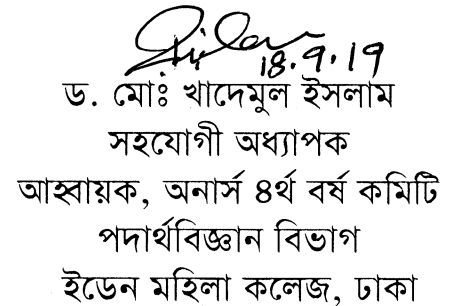 18.9.19
ড. মোঃ খাদেমুল ইসলাম
সহযোগী অধ্যাপক
আহ্বায়ক, অনার্স ৪র্থ বর্ষ কমিটি
পদার্থবিজ্ঞান বিভাগ
ইডেন মহিলা কলেজ, ঢাকা